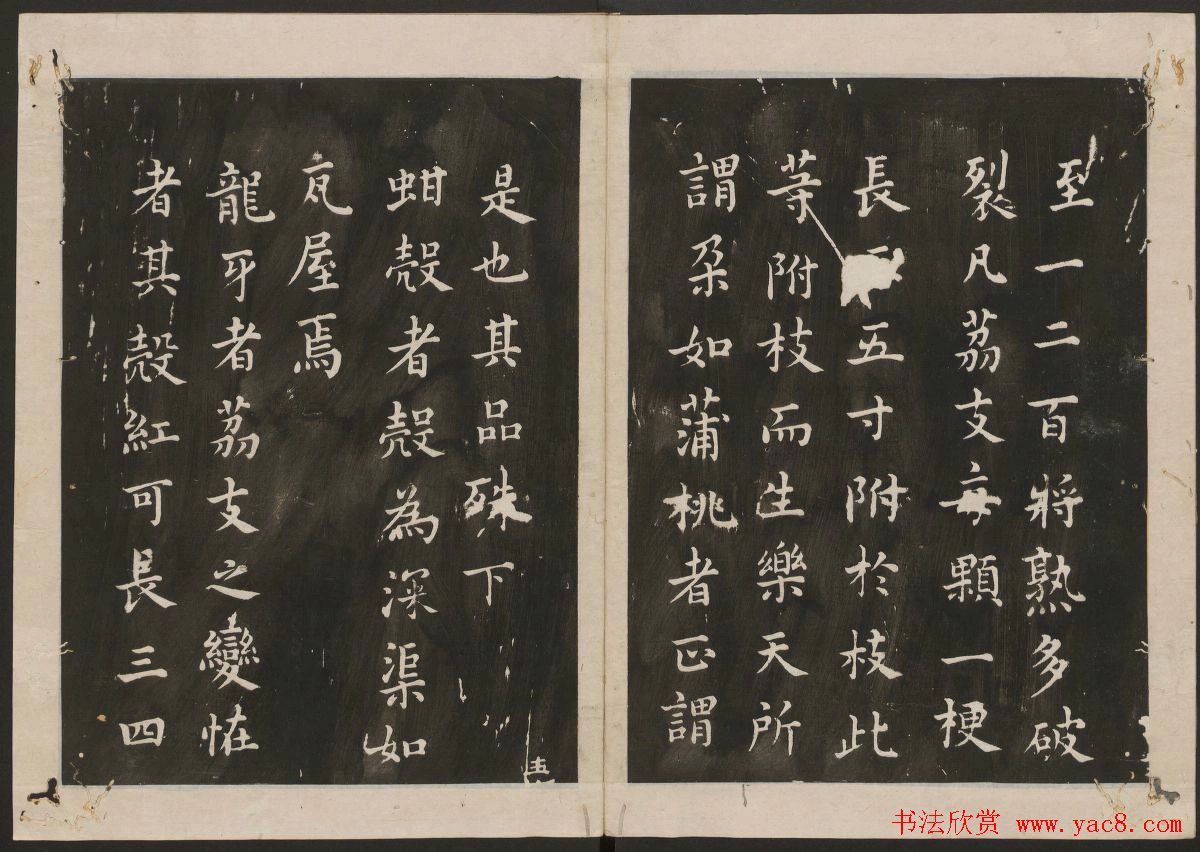 至一二百將熟多破
裂凡荔支每顆一梗
長三五寸附於枝此
等附枝而生樂天所
謂朶如蒲桃者正謂
是也其品殊下
蚶殼者殼為深渠如
瓦屋焉
龍牙者荔支之變怪
者其殼紅可長三四
書法欣赏 www.yac8.com